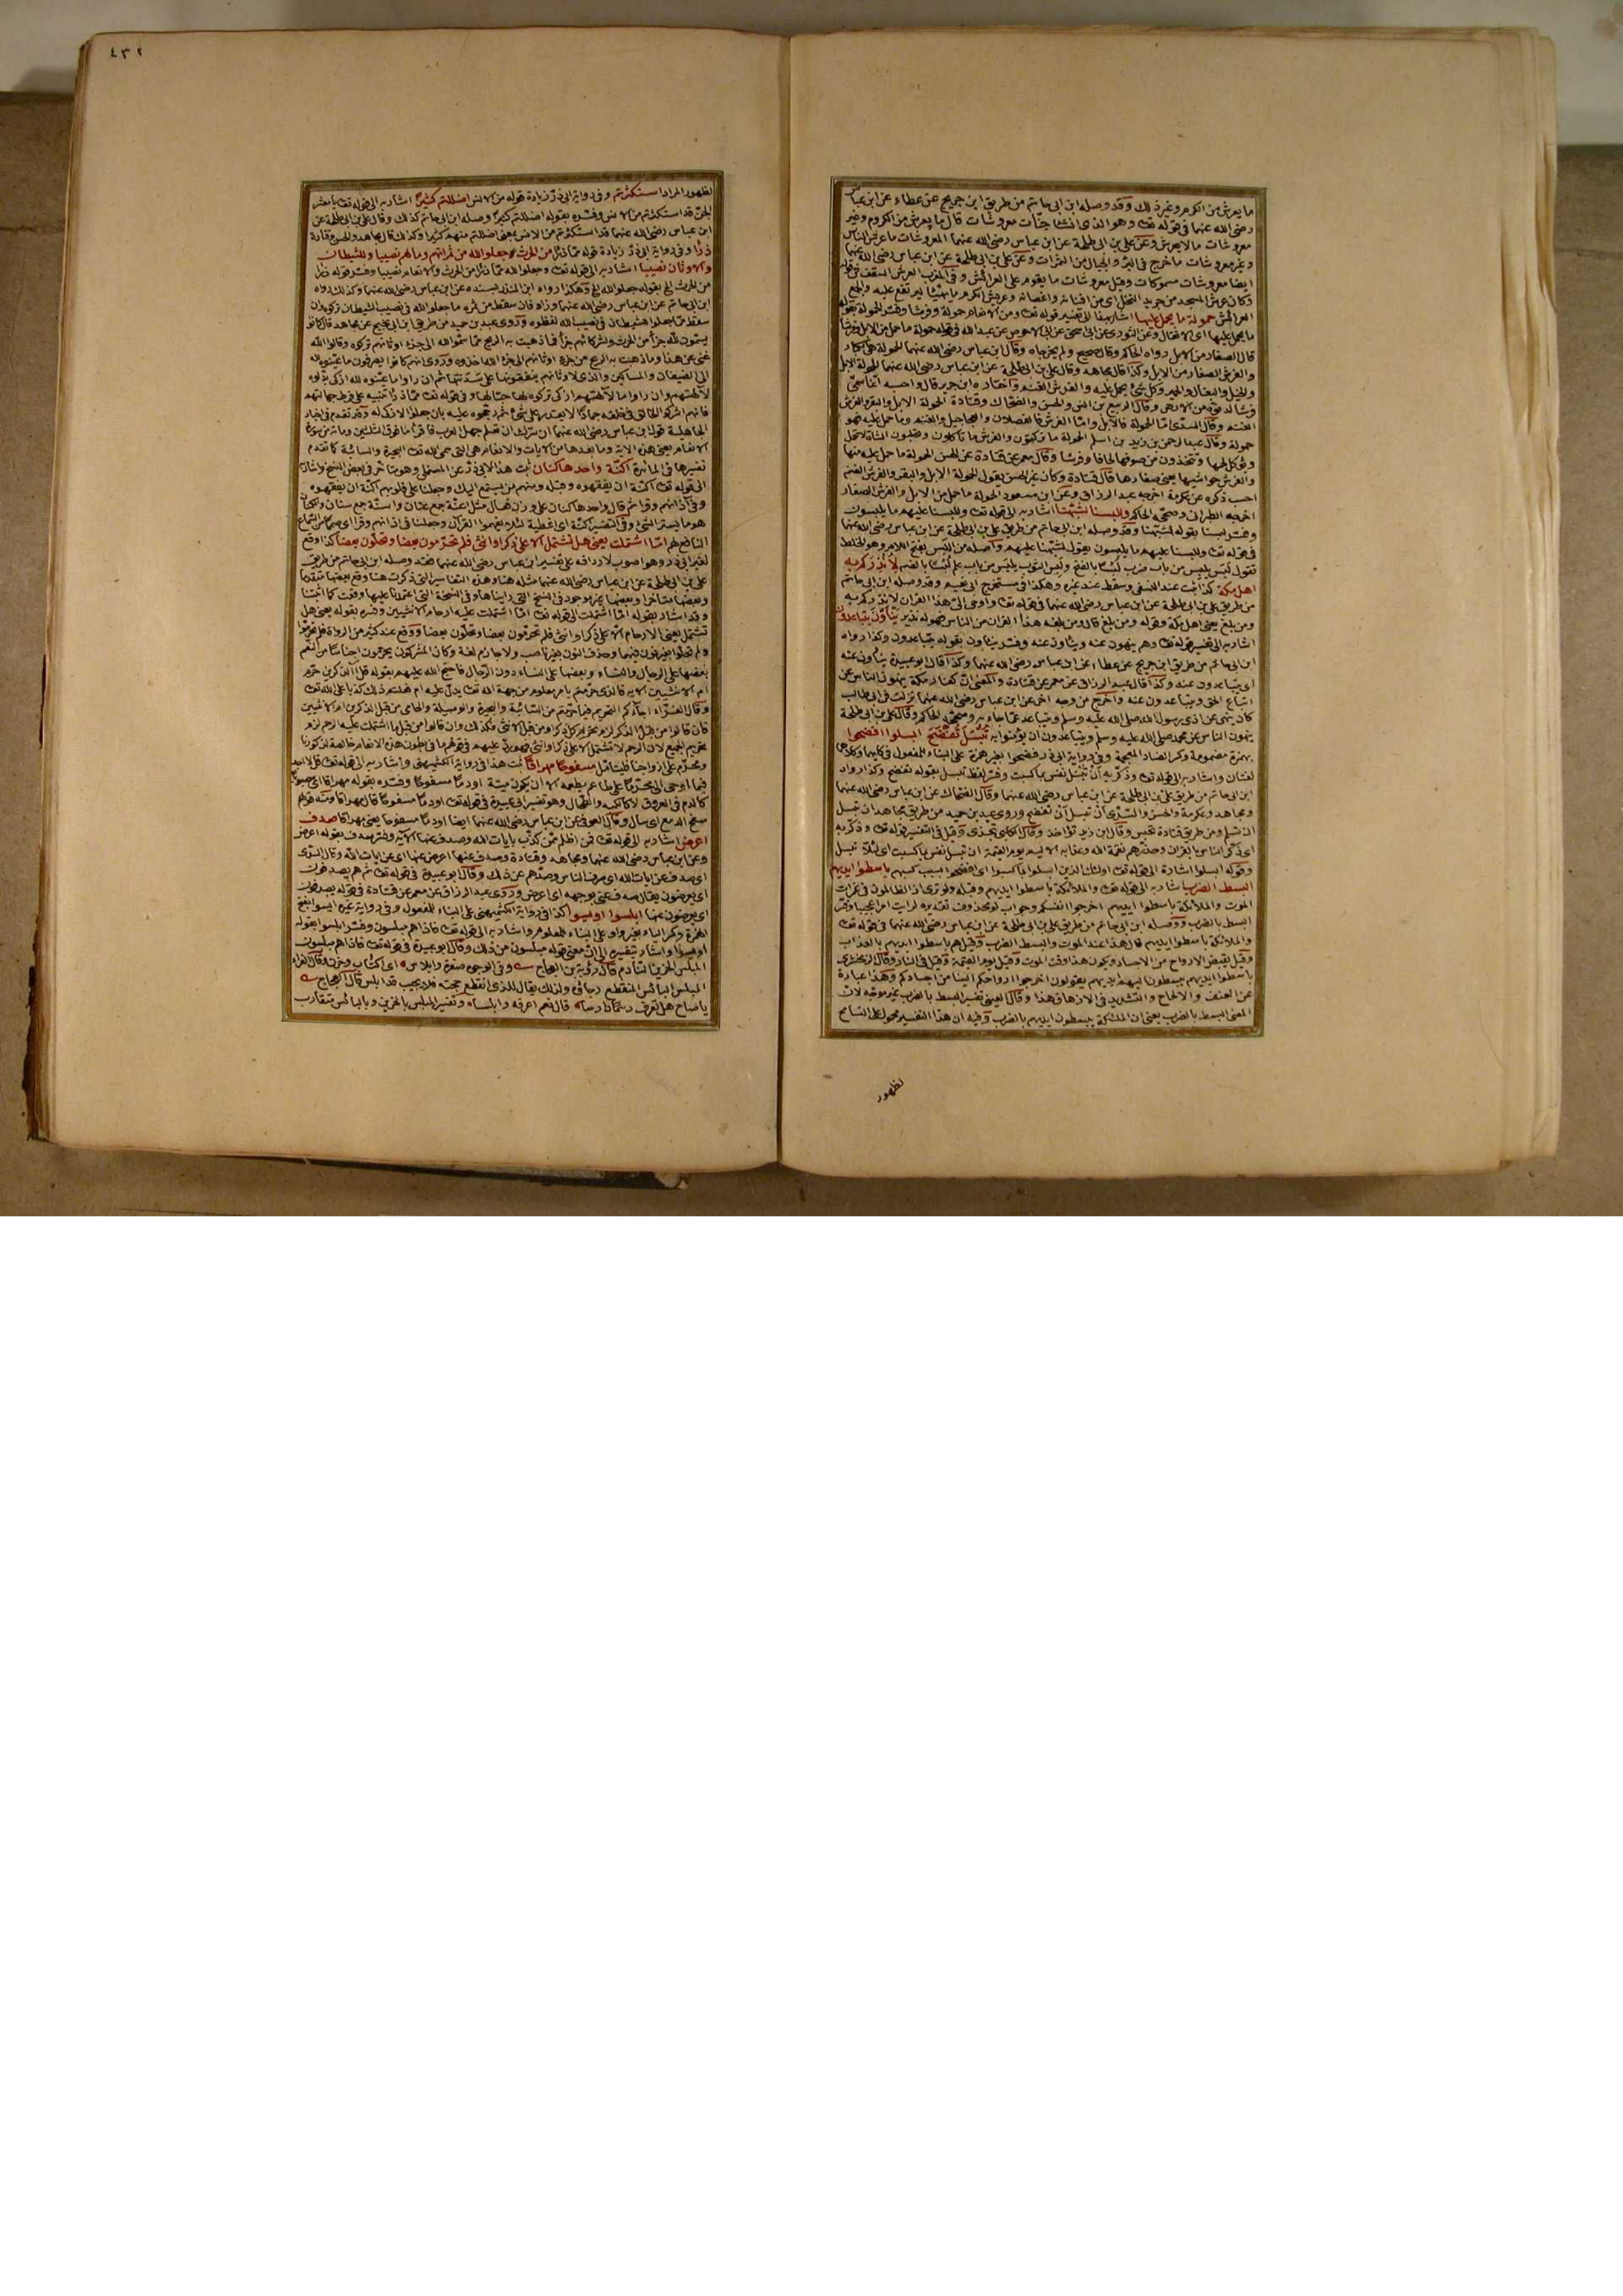 ما يعرش من الكرم وغير ذلك وقد وصله ابن ابى حاتم من طريق ابن جريج عن عطاء عن ابن عباس
رضى الله عنهما فى قوله تعـ وهو الذى انشأ جنّات معروشات قال ما يعرش من الكروم وغير
معروشات ما لا يعرش وعن على بن ابى طلحة عن ابن عباس رضى الله عنهما المعروشات ما عرش الناس
وغير معروشات ما خرج فى البر والجبال من الثمرات وعن على بن ابى طلحة عن ابن عباس رضى الله عنهما
ايضا معروشات مسموكات وقيل معروشات ما يقوم على العرائش وفى المغرب العرش السقف فى قوله
وكان عرش المسجد من جريد النخل اى من افنانه واغصانه وعريش الكرم ما يهيّأ ليرتفع عليه والجمع
العرائش حمولة ما يحمل عليها اشار بهذا الى تفسير قوله تعـ ومن الانعام حمولة وفرشا وفسّر الحمولة بقوله
ما يحمل عليها اى الاثقال وعن الثورى عن ابى اسحق عن ابى الاحوص عن عبد الله فى قوله حمولة ما حمل من الابل وفرشا
قال الصغار من الابل رواه الحاكم وقال صحيح ولم يخرجاه وقال ابن عباس رضى الله عنهما الحمولة هى الكبار
والفرش الصغار من الابل وكذا قال مجاهد وقال على بن ابى طلحة عن ابن عباس رضى الله عنهما الحمولة الابل
والخيل والبغال والحمير وكل شئ يحمل عليه والفرش الغنم واختاره ابن جرير قال واحسبه انما سمّى
فرشا لدنوّه من الارض وقال الربيع بن انس والحسن والضحّاك وقتادة الحمولة الابل والبقر والفرش
الغنم وقال السدّى امّا الحمولة فالابل وامّا الفرش فالفصلان والعجاجيل والغنم وما حمل عليه فهو
حمولة وقال عبد الرحمن بن زيد بن اسلم الحمولة ما تركبون والفرش ما تأكلون وتحلبون الشاة لا تحمل
ويؤكل لحمها وتتخذون من صوفها لحافا وفرشا وقال معمر عن قتادة عن الحسن الحمولة ما حمل عليه منها
والفرش حواشيها يعنى صغارها قال قتادة وكان غير الحسن يقول الحمولة الابل والبقر والفرش الغنم
احسب ذكره عن عكرمة اخرجه عبد الرزاق وعن ابن مسعود الحمولة ما حمل من الابل والفرش الصغار
اخرجه الطبرانى وصحّحه الحاكم وللبسنا لشبّهنا اشار به الى قوله تعـ وللبسنا عليهم ما يلبسون
وفسّر لبسنا بقوله لشبّهنا وقد وصله ابن ابى حاتم من طريق على بن ابى طلحة عن ابن عباس رضى الله عنهما
فى قوله تعـ وللبسنا عليهم ما يلبسون يقول لشبّهنا عليهم واصله من اللبس بفتح اللام وهو الخلط
تقول لبَس يلبِس من باب ضرب لَبسًا بالفتح ولبِس الثوب يلبَس من باب علم لُبسًا بالضم لأنذركم به
اهل مكة كذا ثبت عند النسفى وسقط عند غيره وهكذا فى مستخرج ابى نعيم وقد وصله ابن ابى حاتم
من طريق على بن ابى طلحة عن ابن عباس رضى الله عنهما فى قوله تعـ واوحى الىّ هذا القران لانذركم به
ومن بلغ يعنى اهل مكة وقوله ومن بلغ قال ومن بلغه هذا القران من الناس فهو له نذير ينأون يتباعدون
اشار به الى تفسير قوله تعـ وهم ينهون عنه وينأون عنه وفسّر ينأون بقوله يتباعدون وكذا رواه
ابن ابى حاتم من طريق ابن جريج عن عطاء عن ابن عباس رضى الله عنهما وكذا قال ابو عبيدة ينأون عنه
اى يتباعدون عنه وكذا قال عبد الرزاق عن معمر عن قتادة والمعنى انّ كفار مكة ينهون الناس عن
اتباع الحق ويتباعدون عنه واخرج من وجه اخر عن ابن عباس رضى الله عنهما نزلت فى ابى طالب
كان ينهى عن اذى رسول الله صلى الله عليه وسلم ويتباعد عمّا جاء به وصحّحه الحاكم وقال على بن ابى طلحة
ينهون الناس عن محمد صلى الله عليه وسلم ويتباعدون ان يؤمنوا به تُبْسَلَ تُفْضَحَ ابسلوا افضحوا
بهمزة مضمومة وكسر الضاد المعجمة وفى رواية ابى ذر فضحوا بغير همزة على البناء للمفعول فى كليهما وكلاهما
لغتان واشار به الى قوله تعـ وذكّر به أن تُبسَل نفس بما كسبت وفسّر لفظ تبسل بقوله تفضح وكذا رواه
ابن ابى حاتم من طريق على بن ابى طلحة عن ابن عباس رضى الله عنهما وقال الضحاك عن ابن عباس رضى الله عنهما
ومجاهد وعكرمة والحسن والسّدّى أن تبسل أن تفضح وروى عبد بن حميد من طريق مجاهد ان تبسل
ان تسلم ومن طريق قتادة تحبس وقال ابن زيد تؤاخذ وقال الكلبى تجزى وقيل فى التفسير قوله تعـ وذكّر به
اى ذكّر الناس بالقران وحذّرهم نقمة الله وعذابه الاليم يوم القيمة ان تبسل نفس بما كسبت اى لئلا تبسل
وقوله ابسلوا اشارة الى قوله تعـ اولئك الذين ابسلوا بما كسبوا اى افضحوا بسبب كسبهم باسطوا ايديهم
البسط الضرب اشار به الى قوله تعـ والملائكة باسطوا ايديهم وقبله ولو ترى اذ الظالمون فى غمرات
الموت والملائكة باسطوا ايديهم اخرجوا انفسكم وجواب لو محذوف تقديره لرايت امرا عجيبا وفسّر
البسط بالضرب ووصله ابن ابى حاتم من طريق على بن ابى طلحة عن ابن عباس رضى الله عنهما فى قوله تعـ
والملائكة باسطوا ايديهم قال هذا عند الموت والبسط الضرب وقيل هم باسطوا ايديهم بالعذاب
وقيل بقبض الارواح من الاجساد ويكون هذا وقت الموت وقيل يوم القيمة وقيل فى النار وقال الزمخشرى
باسطوا ايديهم يبسطون اليهم ايديهم يقولون اخرجوا ارواحكم الينا من اجسادكم وهذا عبارة
عن العنف والالحاح والتشديد فى الازهاق هذا وقال العينى تفسير البسط بالضرب غير موجّه لانّ
المعنى البسط بالضرب يعنى ان الملئكة يبسطون ايديهم بالضرب وفيه ان هذا التفسير محمول على التسامح
لظهور
٤٣٢
لظهور المراد استكثرتم وفى رواية ابى ذرّ زيادة قوله من الانس اضللتم كثيرًا اشار به الى قوله تعـ يا معشر
الجنّ قد استكثرتم من الانس وفسّره بقوله اضللتم كثيرًا وصله ابن ابى حاتم كذلك وقال على بن ابى طلحة عن
ابن عباس رضى الله عنهما قد استكثرتم من الانس بمعنى اضللتم منهم كثيرا وكذلك قال مجاهد والحسن وقتادة
ذرأ وفى رواية ابى ذرّ زيادة قوله ممّا ذرأ من الحرث جعلوا لله من ثمراتهم ومالهم نصيبا وللشيطان
والاوثان نصيبا اشار به الى قوله تعـ وجعلوا لله ممّا ذرأ من الحرث والانعام نصيبا وفسّر قوله ذرأ
من الحرث الخ بقوله جعلوا لله الخ وهكذا رواه ابن المنذر بسنده عن ابن عباس رضى الله عنهما وكذلك رواه
ابن ابى حاتم عن ابن عباس رضى الله عنهما وزاد فان سقط من ثمره ما جعلوا لله فى نصيب الشيطان تركوه وان
سقط ممّا جعلوا للشيطان فى نصيب الله لفظوه وروى عبد بن حميد من طريق ابن ابى نجيح عن مجاهد قال كانوا
يسمّون لله جزأ من الحرث ولشركائهم جزأ فما ذهبت به الريح ممّا سمّوا لله الى جزء اوثانهم تركوه وقالوا الله
غنىّ عن هذا وما ذهبت به الريح من جزء اوثانهم الى جزء الله اخذوه وروى انهم كانوا يصرفون ما عيّنوه لله
الى الضيفان والمساكين والذى لاوثانهم ينفقونها على سدنتها ثم ان راوا ما عيّنوه لله ازكى بدّلوه
لآلهتهم وان راوا ما لآلهتهم ازكى تركوه لها حبّا لها وفى قوله تعـ ممّا ذرأ تنبيه على فرط جهالتهم
فانهم اشركوا الخالق فى خلقه جمادًا لا يقدر على شئ ثم رجّحوه عليه بان جعلوا الازكى له وقد تقدم فى اخبار
الجاهلية قول ابن عباس رضى الله عنهما ان سرّك ان تعلم جهل العرب فاقرأ ما فوق الثلثين ومائة من سورة
الانعام يعنى هذه الاية وما بعدها من الايات والانعام هى التى حمى الله تعـ البحيرة والسائبة كما تقدم
تفسيرها فى المائدة اكنّة واحدها كنان ثبت هذا لابى ذرّ عن المستملى وهو متأخر فى بعض النسخ واشار به
الى قوله تعـ اكنّة ان يفقهوه وقبله ومنهم من يستمع اليك وجعلنا على قلوبهم اكنّة ان يفقهوه
وفى آذانهم وقرا ثم قال واحدها كنان على وزن فعال مثل اعنّة جمع عنان واسنّة جمع سنان والكنان
هو ما يستر الشئ وفى التفسير اكنّة اى اغطية لئلا يفهموا القرآن وجعلنا فى اذانهم وقرا اى صمما عن السّماع
النافع لهم امّا اشتملت يعنى هل تشتمل الا على ذكر او انثى فلم تحرّمون بعضا وتحلّون بعضا كذا وقع
لغير ابى ذر وهو اصوب لاردافه على تفسير ابن عباس رضى الله عنهما فقد وصله ابن ابى حاتم من طريق
على بن ابى طلحة عن ابن عباس رضى الله عنهما مثله هنا وهذه التفاسير التى ذكرت هنا وقع بعضها متقدما
وبعضها متأخرا وبعضها غير موجود فى النسخ التى رايناها وفى النسخة التى اعتمدنا عليها وقعت كما اثبتنا
وقد اشار بقوله امّا اشتملت الى قوله تعـ امّا اشتملت عليه ارحام الانثيين وفسّره بقوله يعنى هل
تشتمل يعنى الارحام الا على ذكر او انثى فلم تحرّمون بعضا وتحلّون بعضا ووقع عند كثير من الرواة فلم تحرّموا
ولم تحلّوا بغير نون فيهما وحذف النون بغير ناصب ولا جازم لغة وكان المشركون يحرّمون اجناسا من النعم
بعضها على الرجال والنساء وبعضها على النساء دون الرجال فاحتج الله عليهم بقوله قل آلذكرين حرّم
ام الانثيين الاية فالذى حرّمتم بامر معلوم من جهة الله تعـ يدلّ عليه ام فعلتم ذلك كذبا على الله تعـ
وقال الفرّاء اجاءكم التحريم فيما حرّمتم من السائبة والبحيرة والوصيلة والحامى من قبل الذكرين ام الانثيين
فان قالوا من قبل الذكر لزم تحريم كل ذكر او من قبل الانثى فكذلك وان قالوا من قبل ما اشتملت عليه الرحم لزم
تحريم الجميع لان الرحم لا تشتمل الا على ذكر او انثى فهو ردّ عليهم فى قولهم ما فى بطون هذه الانعام خالصة لذكورنا
ومحرّم على ازواجنا فليتأمّل مسفوحًا مهراقًا ثبت هذا فى رواية الكشميهنى واشار به الى قوله تعـ قل لا اجد
فيما اوحى الىّ محرّمًا على طاعم يطعمه الا ان يكون ميتة او دمًا مسفوحًا وفسّره بقوله مهراقا اى مصبوبًا
كالدم فى العروق لا كالكبد والطحال وهو تفسير ابى عبيدة فى قوله تعـ او دمًا مسفوحًا قال مهراقا ومنه قولهم
سفح الدمع اى سال وقال العوفى عن ابن عباس رضى الله عنهما ايضا او دمًا مسفوحًا يعنى مهراقا صدف
اعرض اشار به الى قوله تعـ فمن اظلم ممّن كذّب بآيات الله وصدف عنها الآية وفسّر صدف بقوله اعرض
وعن ابن عباس رضى الله عنهما ومجاهد وقتادة وصدف عنها اعرض عنها اى عن ايات الله وقال السدّى
اى صدف عن ايات الله اى صرف الناس وصدّهم عن ذلك وقال ابو عبيدة فى قوله تعـ ثم هم يصدفون
اى يعرضون يقال صدف عنى بوجهه اى اعرض وروى عبد الرزاق عن معمر عن قتادة فى قوله يصدفون
اى يعرضون عنها ابلسوا اويسوا كذا فى رواية الكشميهنى على البناء للمفعول وفى رواية غيره ايسوا بفتح
الهمزة وكسر الياء بغير واو على البناء للمعلوم واشار به الى قوله تعـ فاذا هم مبلسون وفسّر ابلسوا بقوله
اويسوا واشار بتفسيره الى انّ معنى قوله مبلسون من ذلك وقال ابو عبيدة فى قوله تعـ فاذا هم مبلسون
المبلس الحزين النادم قال رؤبة بن العجاج وفى الوجوه صفرة وابلاس اى اكتئاب وحزن وقال الفراء
المبلس اليائس المنقطع رجاؤه ولذلك يقال للذى انقطع حجته فلا يجيب قد ابلس قال العجاج
يا صاح هل تعرف رسمًا مكرسا قال نعم اعرفه وابلسا وتفسير المبلس بالحزين وباليائس متقارب